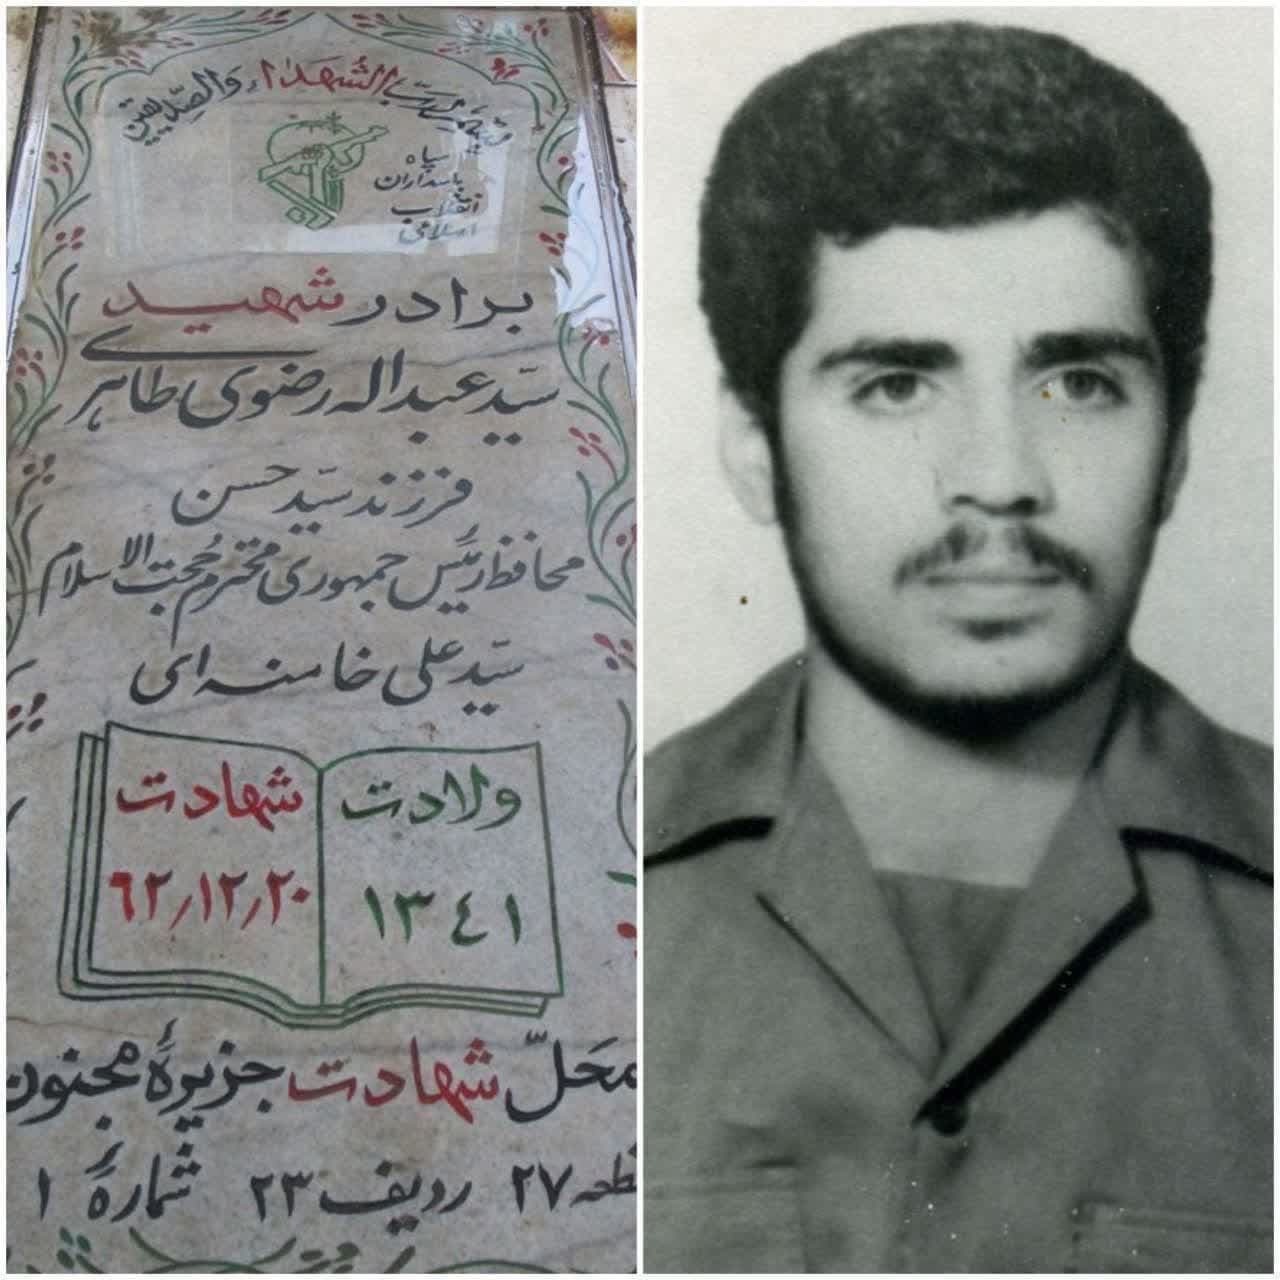 بسم رب الشهداء والصدیقین
سپاه
پاسداران
انقلاب
اسلامی
برادر شهید
سید عبداله رضوی طاهری
فرزند سید حسن
محافظ رئیس جمهوری محترم حجت الاسلام
سید علی خامنه ای
ولادت
۱۳٤۱
شهادت
٦۲٫۱۲٫۲۰
محل شهادت جزیرهٔ مجنون
قطعه ۲۷ ردیف ۲۳ شمارهٔ ۱